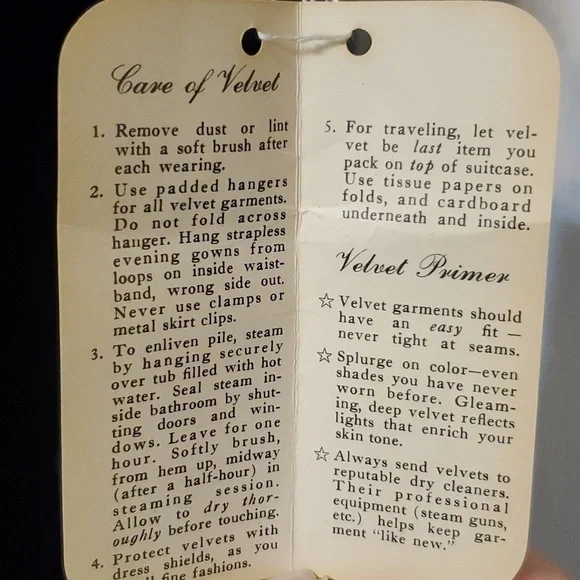 Care of Velvet
1. Remove dust or lint
with a soft brush after
each wearing.
2. Use padded hangers
for all velvet garments.
Do not fold across
hanger. Hang strapless
evening gowns from
loops on inside waist-
band, wrong side out.
Never use clamps or
metal skirt clips.
3. To enliven pile, steam
by hanging securely
over tub filled with hot
water. Seal steam in-
side bathroom by shut-
ting doors and win-
dows. Leave for one
hour. Softly brush,
from hem up, midway
(after a half-hour) in
steaming session.
Allow to dry thor-
oughly before touching.
4. Protect velvets with
dress shields, as you
fine fashions.
5. For traveling, let vel-
vet be last item you
pack on top of suitcase.
Use tissue papers on
folds, and cardboard
underneath and inside.
Velvet Primer
☆ Velvet garments should
have an easy fit —
never tight at seams.
☆ Splurge on color—even
shades you have never
worn before. Gleam-
ing, deep velvet reflects
lights that enrich your
skin tone.
☆ Always send velvets to
reputable dry cleaners.
Their professional
equipment (steam guns,
etc.) helps keep gar-
ment "like new."